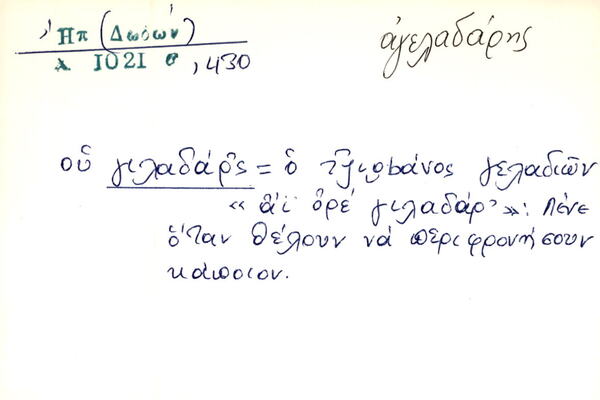 Ἠπ (Δωδών)
λ 1021 σ, 430
ἀγελαδάρης
οὑ γιλαδάῤς = ὁ τζιομbάνος γελαδιῶν
« ἄϊ ὀρέ γιλαδάρ' »: λένε
ὅταν θέλουν νά περιφρονήσουν
κάποιον.